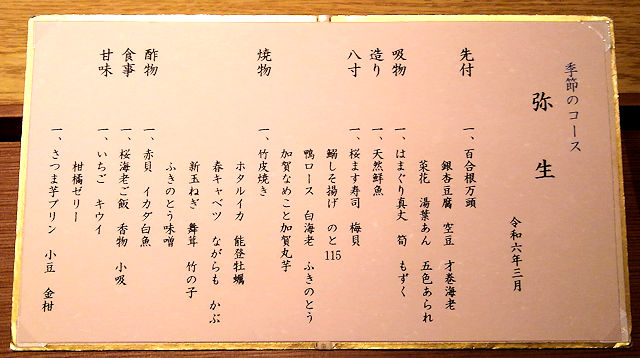 季節のコース
弥生
令和六年三月
先付
一、百合根万頭
銀杏豆腐 空豆 才巻海老
菜花 湯葉あん 五色あられ
吸物
一、はまぐり真丈 筍 もずく
造り
一、天然鮮魚
八寸
一、桜ます寿司 梅貝
鰯しそ揚げ のと115
鴨ロース 白海老 ふきのとう
加賀なめこと加賀丸芋
焼物
一、竹皮焼き
ホタルイカ 能登牡蠣
春キャベツ ながらも かぶ
新玉ねぎ 舞茸 竹の子
ふきのとう味噌
酢物
一、赤貝 イカダ白魚
食事
一、桜海老ご飯 香物 小吸
甘味
一、いちご キウイ
柑橘ゼリー
一、さつま芋プリン 小豆 金柑